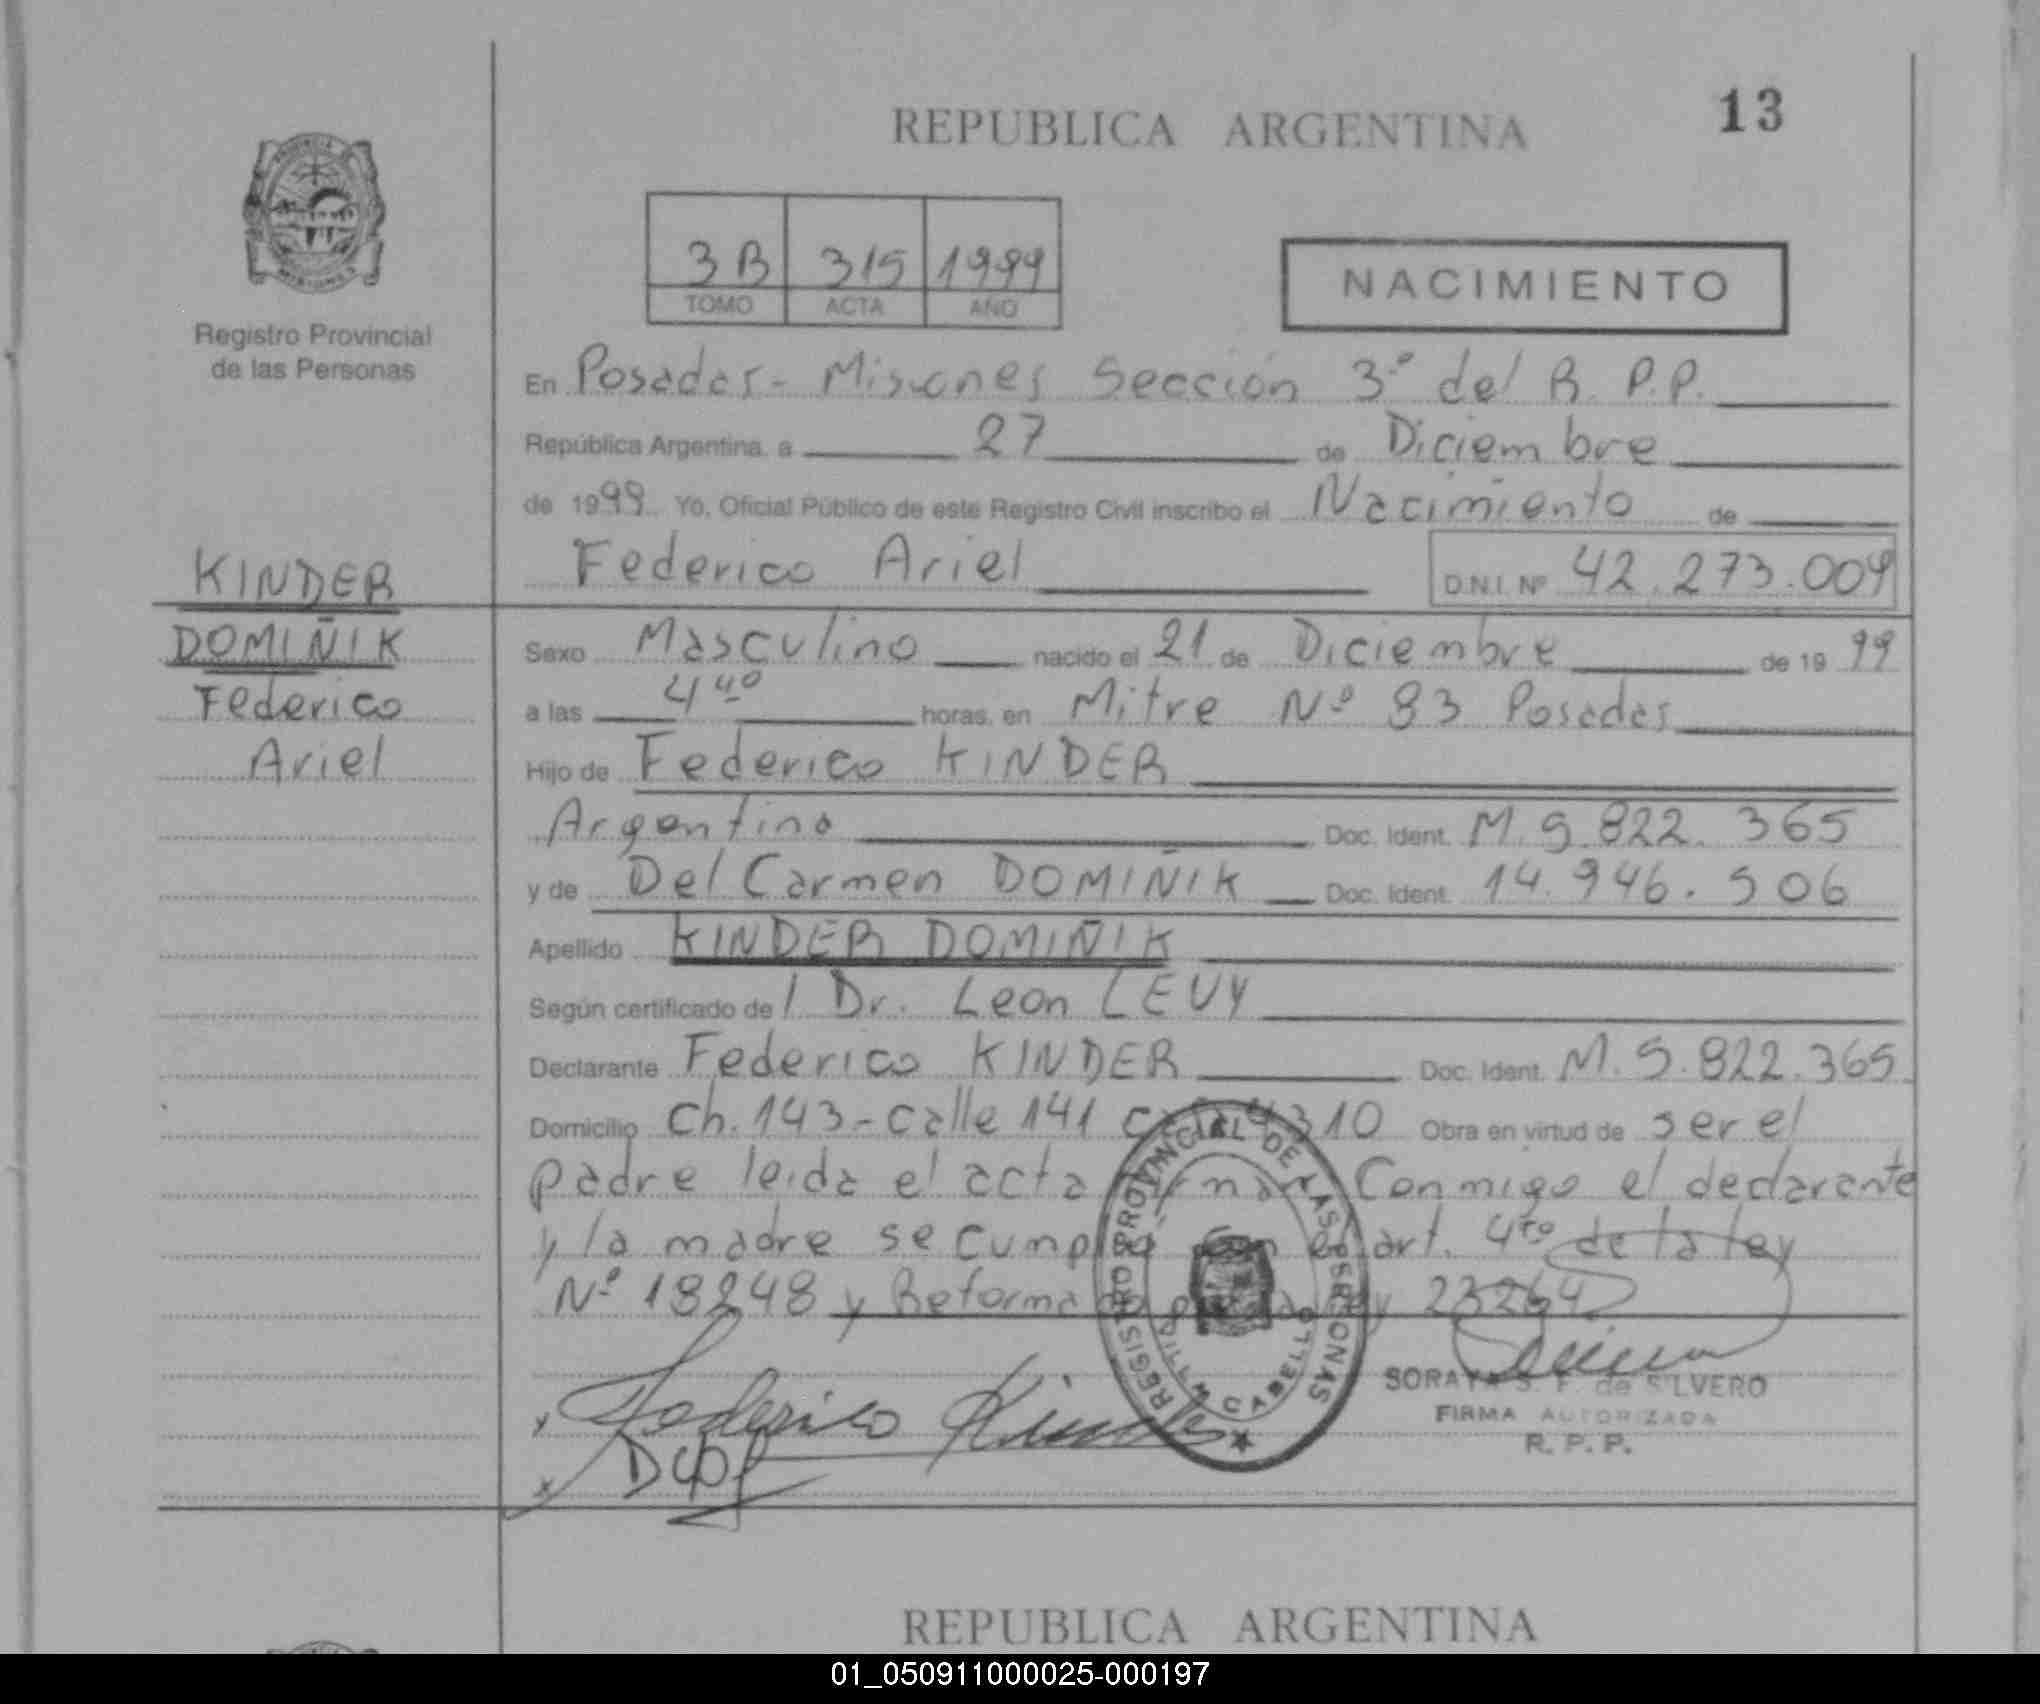 REPUBLICA ARGENTINA
13
3B 315 1999
TOMO ACTA AÑO
NACIMIENTO
Registro Provincial
de las Personas
En Posadas - Misiones Sección 3º del R.P.P.
República Argentina, a 27 de Diciembre
de 1999 Yo, Oficial Público de este Registro Civil inscribo el Nacimiento de
Federico Ariel D.N.I. Nº 42.273.009
KINDER
DOMIÑIK
Federico
Ariel
Sexo Masculino nacido el 21 de Diciembre de 1999
a las 4 40 horas, en Mitre Nº 83 Posadas
Hijo de Federico KINDER
Argentino Doc. Ident. M.5.822.365
y de Del Carmen DOMIÑIK Doc. Ident. 14.946.506
Apellido KINDER DOMIÑIK
Según certificado del Dr. Leon LEVY
Declarante Federico KINDER Doc. Ident. M.5.822.365
Domicilio Ch. 143 - calle 141 casa 4310 Obra en virtud de ser el
padre leida el acta firman Conmigo el declarante
y la madre se cumple con el art. 4to de la ley
Nº 18248 y Reforma por ley 23264
REGISTRO PROVINCIAL DE LAS PERSONAS
VILLA CABELLO
Federico Kinder
SORAYA S. F. de SILVERO
FIRMA AUTORIZADA
R. P. P.
REPUBLICA ARGENTINA
01_050911000025-000197